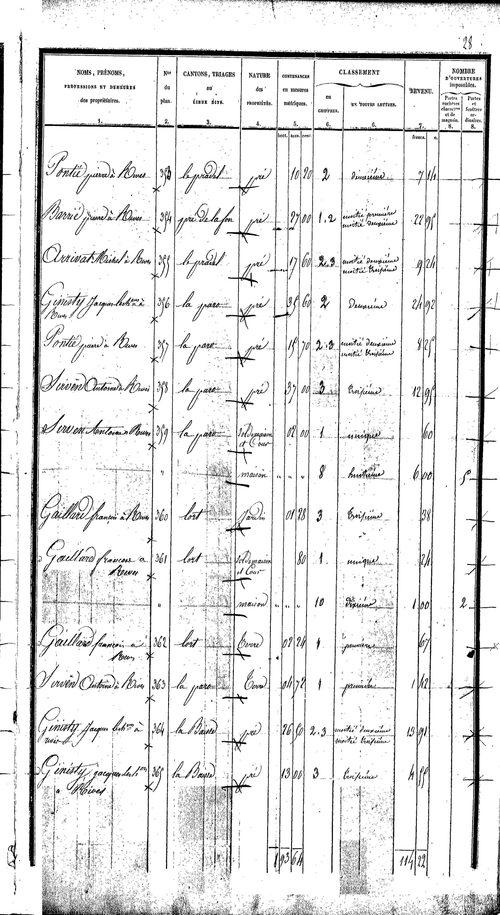 28
NOMS, PRÉNOMS, PROFESSIONS ET DEMEURES des propriétaires. Nos du plan. CANTONS, TRIAGES OU LIEUX DITS. NATURE des PROPRIÉTÉS. CONTENANCES en mesures métriques. CLASSEMENT en CHIFFRES. EN TOUTES LETTRES. REVENU. NOMBRE D'OUVERTURES imposables. Portes cochères charretières et de magasin. Portes et fenêtres ordinaires.
1. 2. 3. 4. 5. 6. 6. 7. 8. 8.
hect. ares. cent. francs. c.
Pontié pierre à Rives 353 le pradel pré 10 20 2 deuxième 7 14
Barrié pierre à Rives 354 pré de la fon pré 27 00 1.2 moitié première
moitié deuxième 22 95
Arrivat Michel à Rives 355 le pradel pré 17 60 2.3 moitié deuxième
moitié troisième 9 24
Ginesty Jacques à
Rives 356 la parc pré 35 60 2 Deuxième 24 92
Pontié pierre à Rives 357 la parc pré 15 70 2.3 moitié deuxième
moitié troisième 8 25
Sirven Antoine à Rives 358 la parc pré 37 00 3 troisième 12 95
Sirven Antoine à Rives 359 la parc Sol de maison
et Cour 02 00 1 unique 60
" " maison " " " 8 huitième 6 00 5
Gaillard françois à Rives 360 lort Jardin 01 28 3 troisième 38
Gaillard françois à
Rives 361 lort Sol de maison
et Cour 80 1 unique 24
" maison " " " 10 dixième 1 00 2
Gaillard françois à
Rives 362 lort Terre 02 24 1 première 67
Sirven Antoine à Rives 363 la parc Terre 04 72 1 première 1 42
Ginesty Jacques à
364 la pré 26 50 2.3 moitié deuxième
moitié troisième 13 91
Ginesty jacques
à Rives 365 la pré 13 00 3 troisième 4 55
1 93 64 114 22